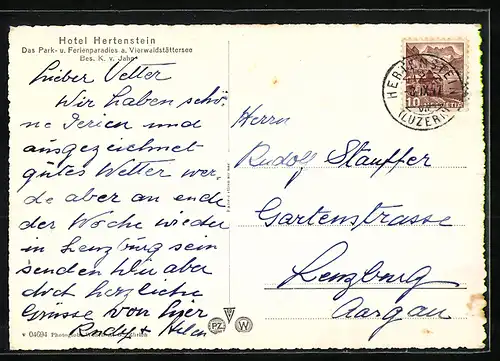 Hotel Hertenstein
Das Park- u. Ferienparadies a. Vierwaldstättersee
Bes. K. v. Jahn
Lieber Vetter
Wir haben schö-
ne Ferien und
ausgezeichnet
gutes Wetter wer-
de aber an ende
der Woche wieder
in Lenzburg sein
senden Dir aber
doch herzliche
Grüsse von hier
Rudy + Helen
Herrn
Rudolf Stauffer
Gartenstrasse
Lenzburg
Aargau
HERTENSTEIN
(LUZERN)
10
v 04694
PZ W